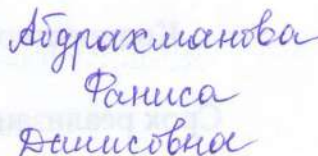 Абдрахманова
Фаниса
Данисовна